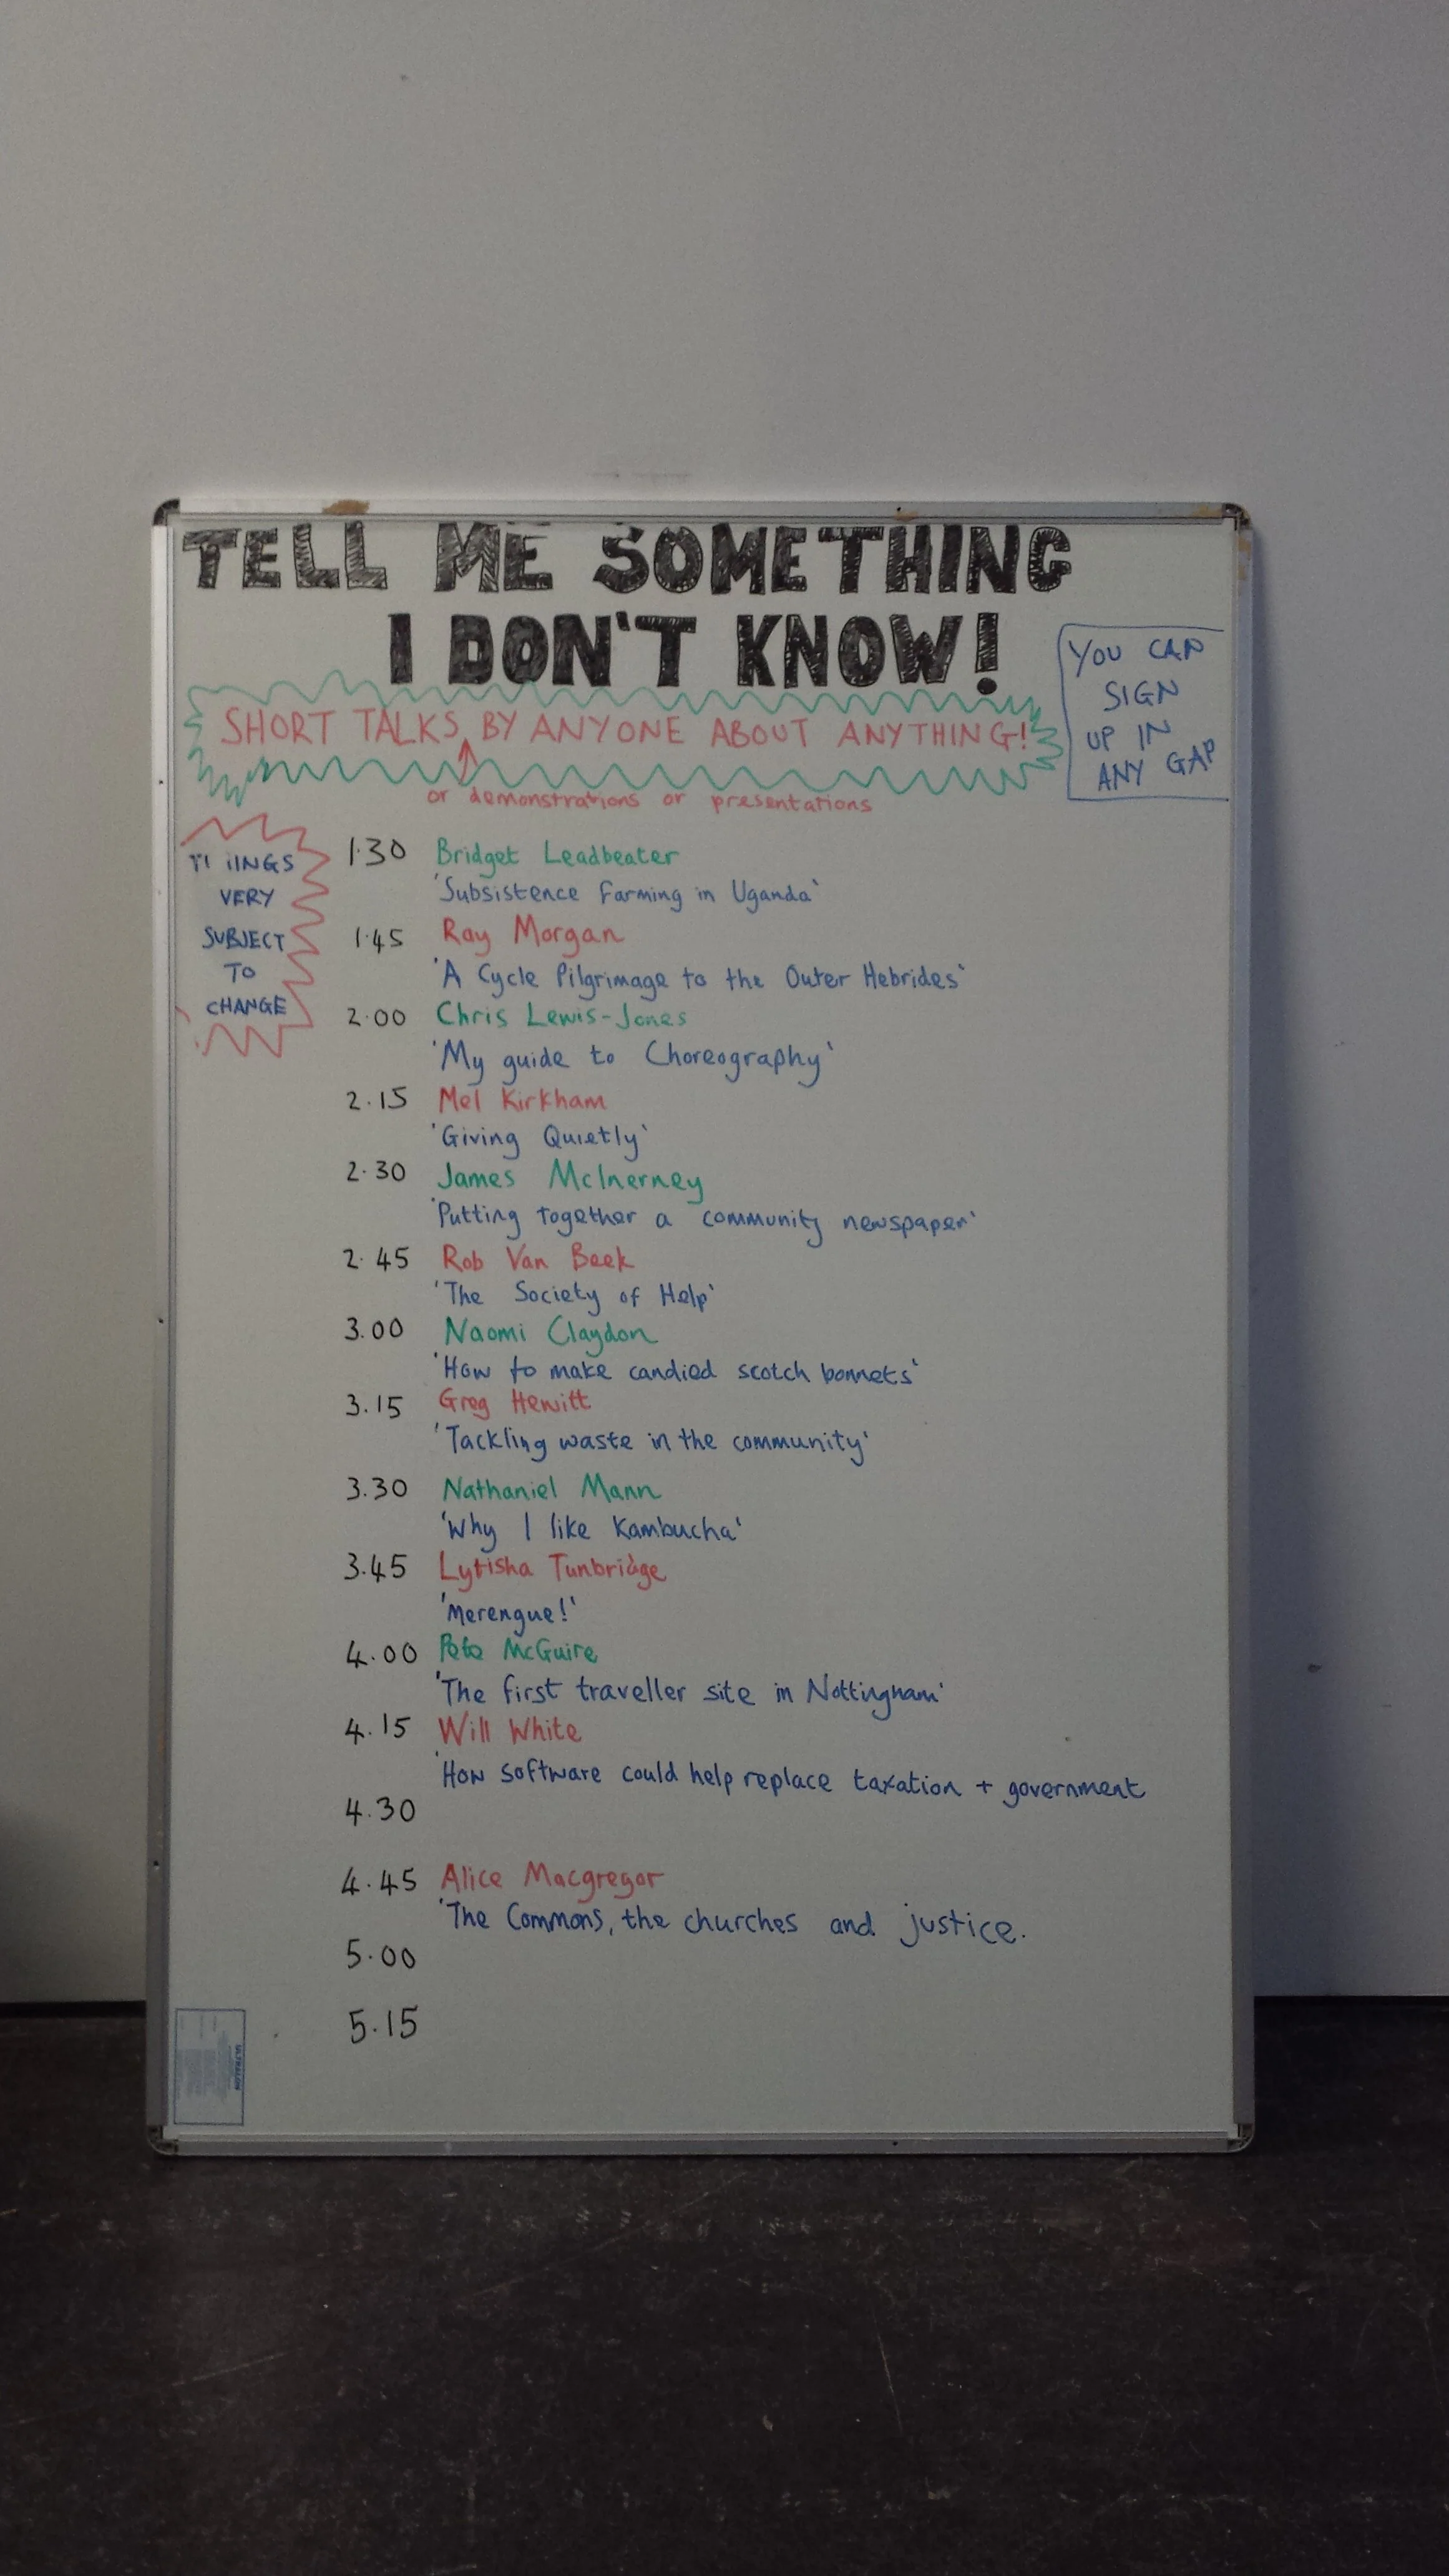 TELL ME SOMETHING
I DON'T KNOW!
YOU CAN
SIGN
UP IN
ANY GAP
SHORT TALKS BY ANYONE ABOUT ANYTHING!
or demonstrations or presentations
TIMINGS
VERY
SUBJECT
TO
CHANGE
1.30 Bridget Leadbeater
'Subsistence farming in Uganda'
1.45 Ray Morgan
'A Cycle Pilgrimage to the Outer Hebrides'
2.00 Chris Lewis-Jones
'My guide to Choreography'
2.15 Mel Kirkham
'Giving Quietly'
2.30 James McInerney
'Putting together a community newspaper'
2.45 Rob Van Beek
'The Society of Help'
3.00 Naomi Claydon
'How to make candied scotch bonnets'
3.15 Greg Hewitt
'Tackling waste in the community'
3.30 Nathaniel Mann
'Why I like Kambucha'
3.45 Lytisha Tunbridge
'Merengue!'
4.00 Pete McGuire
'The first traveller site in Nottingham'
4.15 Will White
'How software could help replace taxation + government
4.30
4.45 Alice Macgregor
'The Commons, the churches and justice.
5.00
5.15